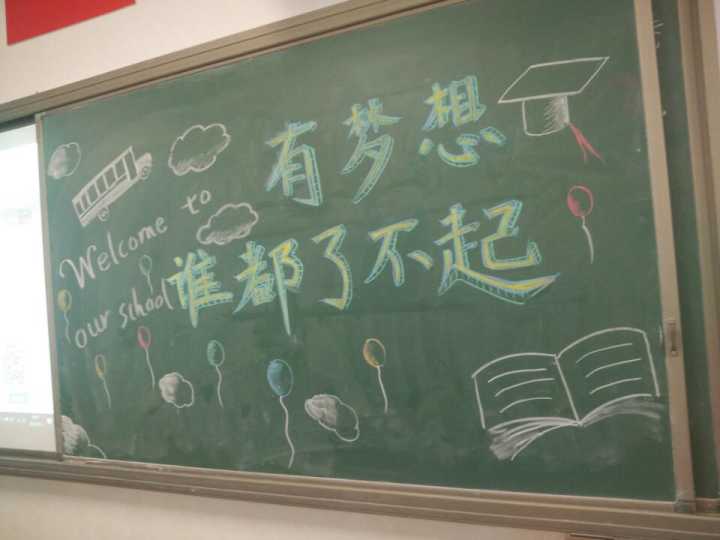 有梦想
谁都了不起
Welcome to
our school